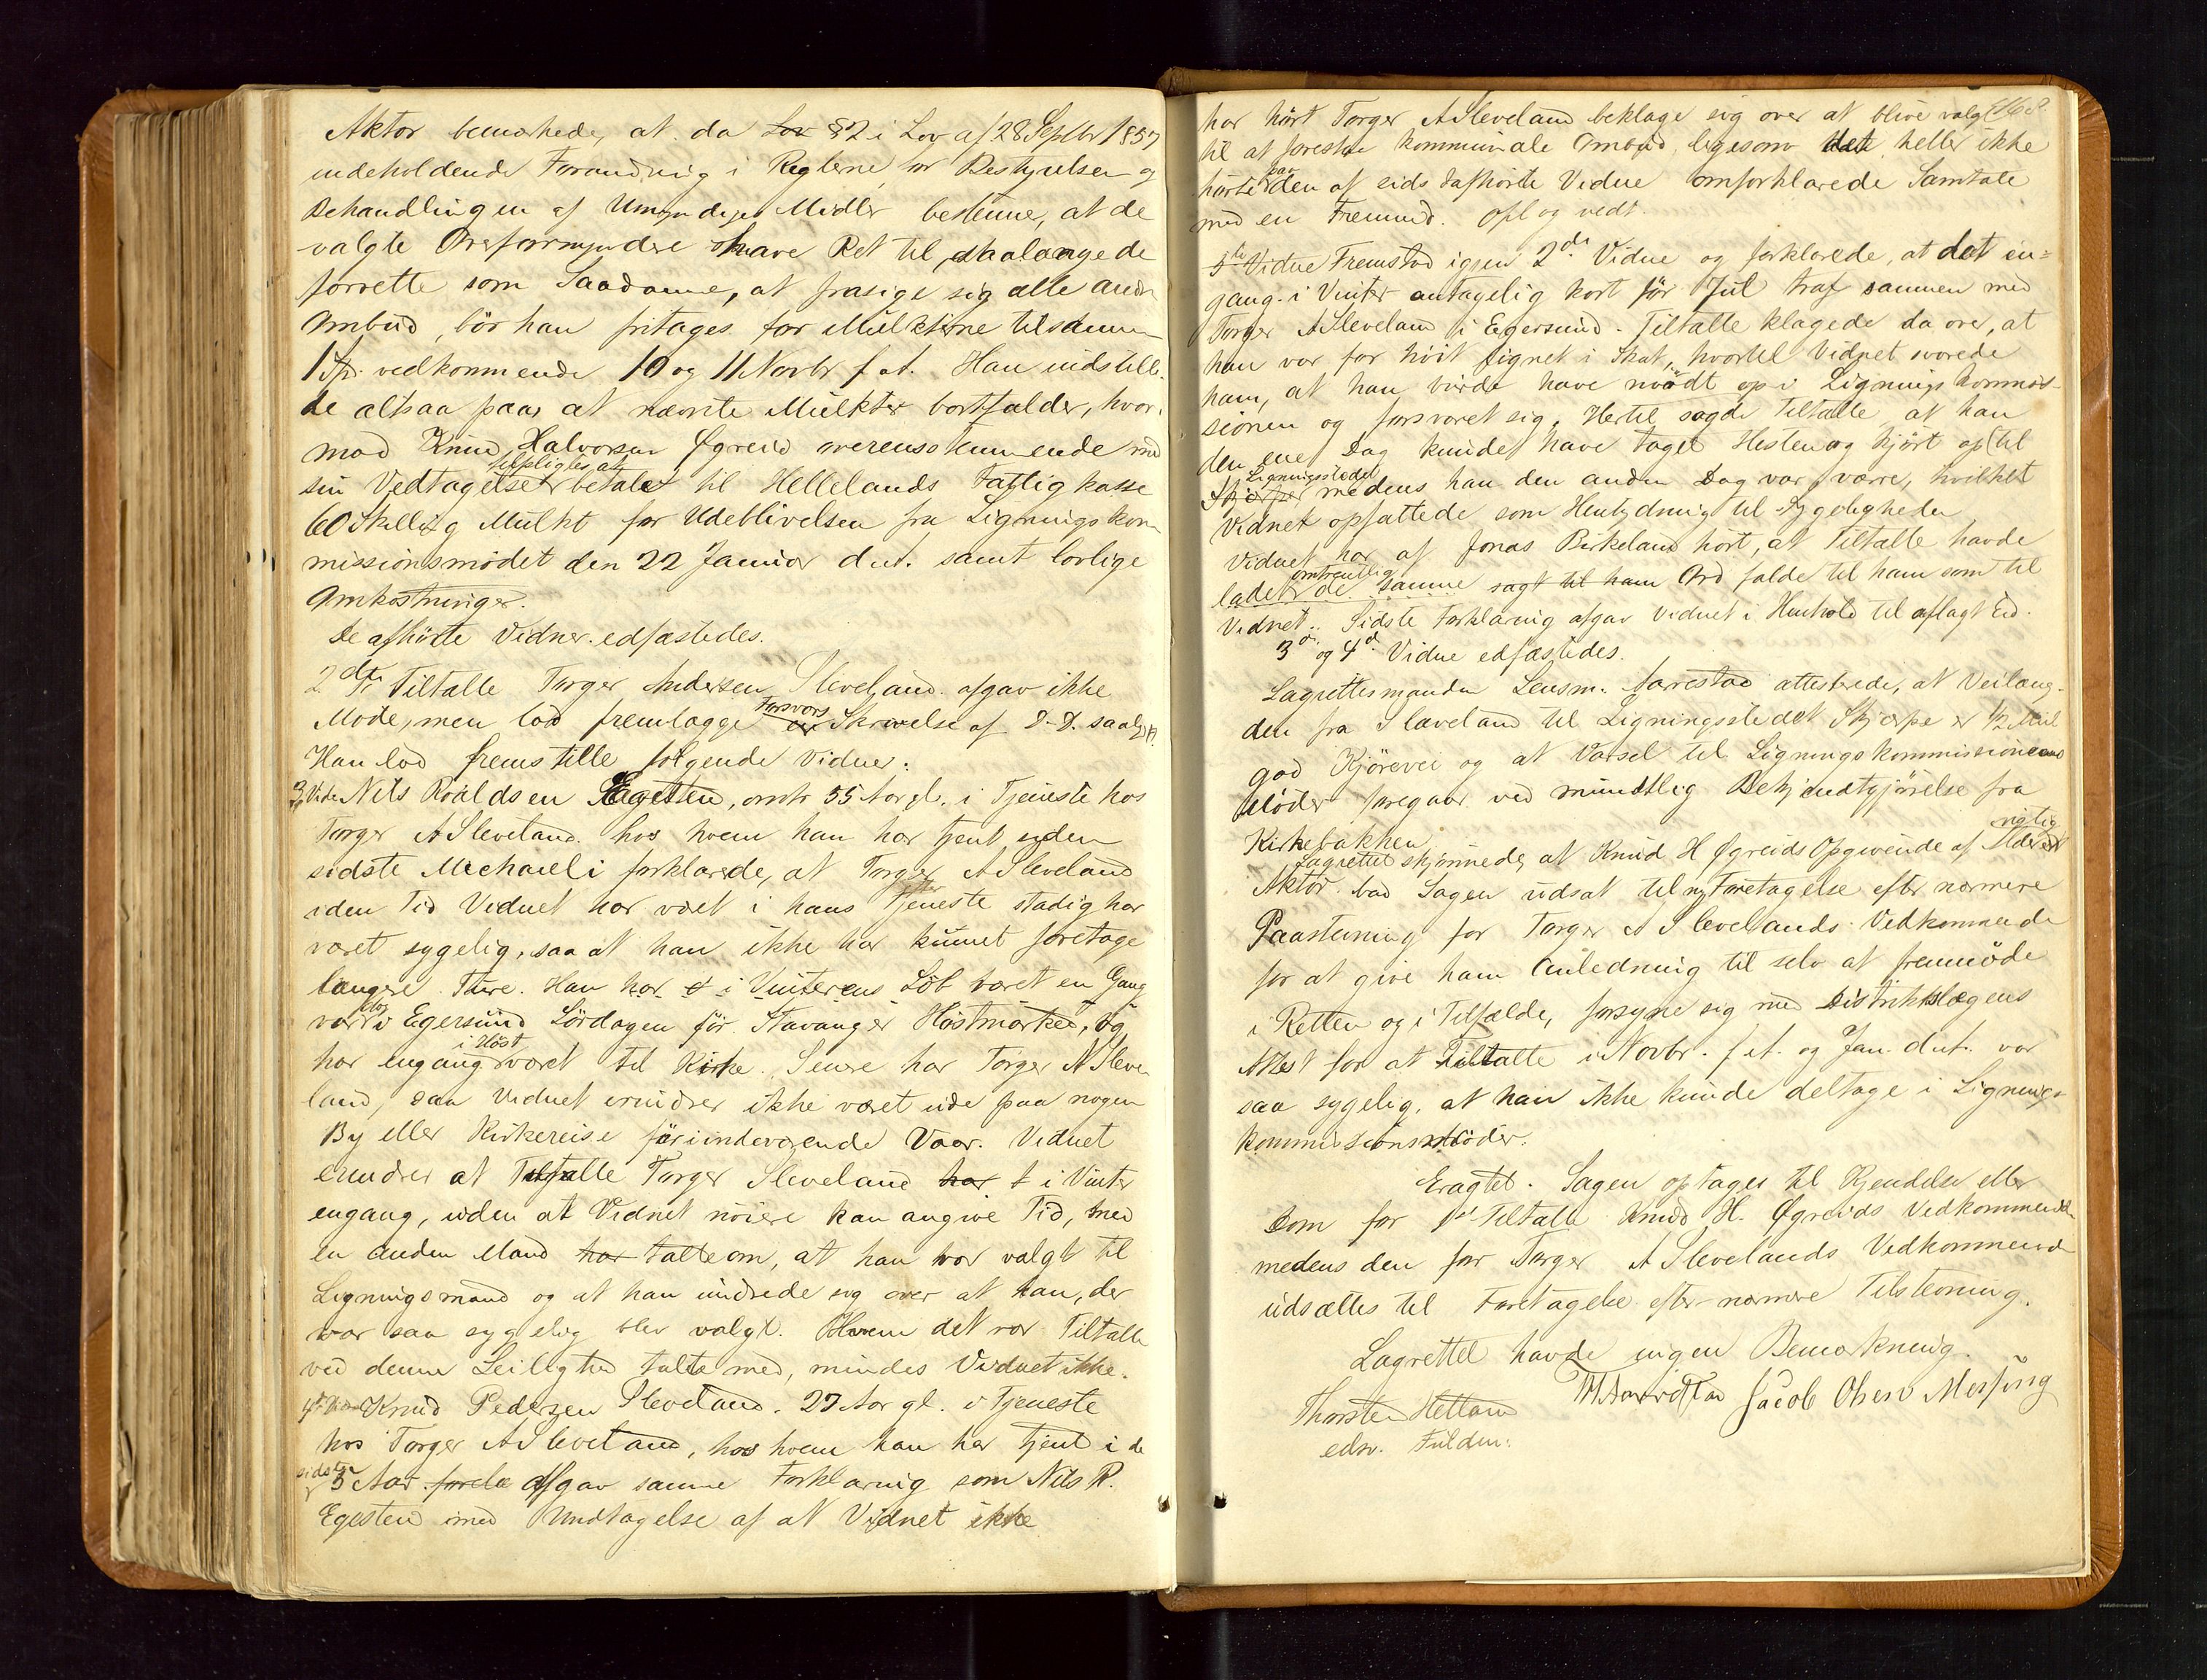 Aktor bemærkede, at da Lov § 2 i Lov af 28 Septbr 1857
indeholdende Forandring i Reglerne for Bestyrelsen og
Behandlingen af Umyndiges Midler bestemmer, at de
valgte Overformyndere have Ret til, saalænge de
forrette som Saadanne, at frasige sig alle andre
Ombud, bör han fritages for Mulkterne tilsammen
1 Spd. vedkommende 10 og 11 Novbr f. A. Han indstille
de altsaa paa, at nævnte Mulkter bortfalder, hvor
mod Knud Halvorsen Øgreid overensstemmende med
tilpligtes at
sin Vedtagelse betale til Hellelands Fattigkasse
60 Skilling Mulkt for Udeblivelsen fra Ligningskom
missionsmödet den 22 Januar d. A. samt lovlige
Omkostninger.
De afhörte Vidner edfæstedes.
2den Tiltalte Torger Andersen Sleveland afgav ikke
Forsvars
Möde, men lod fremlægge en Skrivelse af D. D. saal.
Han lod fremstille fölgende Vidner:
3 Vidne Nils Roaldsen Egesten, omtr 55 Aar gl. i Tjeneste hos
Torger A Sleveland hos hvem han har tjent siden
sidste Michaeli forklarede, at Torger A Sleveland
i den Tid Vidnet har været i hans Tjeneste stadig har
været sygelig, saa at han ikke har kunnet foretage
længere Ture. Han har i Vinterens Löb været en Gang
var i Egersund Lördagen för Stavanger Höstmarked, og
i Höst
har engang været til Kirke. Senere har Torger A Sleve
land, saa Vidnet erindrer ikke været ude paa nogen
By eller Kirkereise för indeværende Vaar. Vidnet
erindrer at Tiltalte Torger Sleveland har i Vinter
engang, uden at Vidnet nöiere kan angive Tid, med
en anden Mand har talte om, at han var valgt til
Ligningsmand og at han undrede sig over at han, der
var saa sygelig blev valgt. Hvem det var Tiltalte
ved denne Leilighed talte med, mindes Vidnet ikke.
4de Vidne Knud Pedersen Sleveland. 27 Aar gl. i Tjeneste
hos Torger A Sleveland, hos hvem han har tjent i de
sidste
3 Aar afgav samme Forklaring som Nils R.
Egesten med Undtagelse af at Vidnet ikke
har hört Torger A Sleveland beklage sig over at blive valgt
til at forestaa kommunale Ombud ligesom det heller ikke
paa
hörte den af sidst afhörte Vidne omforklarede Samtale
med en Fremmed. Opl og vedt.
Vidne Fremstod igjen 2det Vidne og forklarede, at det en=
gang i Vinter antagelig kort för Jul traf sammen med
Torger A Sleveland i Egersund. Tiltalte klagede da over, at
han var for höit lignet i Skat, hvortil Vidnet svarede
ham, at han burde have mödt op i Ligningskommis-
sionen og forsvaret sig. Hertil sagde Tiltalte at han
den ene Dag kunde have taget Hesten og kjört op til
Ligningsstedet
Skjerpe medens han den anden Dag var værre, hvilket
Vidnet opfattede som Hentydning til Sygeligheden
Vidnet har af Jonas Birkeland hört, at Tiltalte havde
omtrentlig
ladet de samme sagt til ham Ord falde til ham som til
Vidnet. Sidste Forklaring afgav Vidnet i Henhold til aflagt Ed.
3de og 4de Vidne edfæstedes.
Lagrettesmanden Lensm. Aarrestad attesterede, at Veilæng-
den fra Slæveland til Ligningsstedet Skjerpe er 1/2 Mil
god Kjörevei og at Varsel til Ligningskommissionens
Möder foregaar ved mundtlig Bekjendtgjörelse fra
Kirkebakken.
rigtig
Lagrettet skjönnede, at Knud H Øgreids Opgivende af Alder er
Aktor bad Sagen udsat til ny Foretagelse efter nærmere
Paastevning for Torger A Slevelands Vedkommende
for at give ham Anledning til selv at fremmöde
i Retten og i Tilfælde, forsyne sig med Distriktslægens
Attest for at Tiltalte i Novbr. f. A. og Jan. d. A. var
saa sygelig, at han ikke kunde deltage i Lignings-
kommissionsmöder.
Eragtet. Sagen optages til Kjendelse eller
Dom for 1ste Tiltalte Knud H. Øgreids Vedkommende
medens den for Torger A Slevelands Vedkommende
udsættes til Foretagelse efter nærmere Tilstevning.
Lagrettet havde ingen Bemærkning.
Thorsten Hetland Jacob Olsen Mersing
edsv. Fuldm: